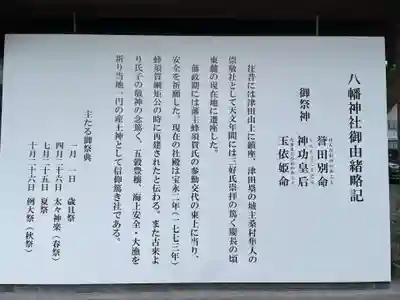 八幡神社御由緒略記
御祭神
誉田別命
神功皇后
玉依姫命
往昔には津田山上に鎮座、津田塁の城主桑村隼人の
崇敬社として天文年間には三好氏崇拝の篤く慶長の頃
東麓の現在地に遷座した。
藩政期には藩主蜂須賀氏の参勤交代の東上に当り、
安全を祈願した。現在の社殿は宝永二年(一七七三年)
蜂須賀綱矩公の時に再建されたと伝わる。また古来よ
り氏子の敬神の念篤く、五穀豊穣、海上安全・大漁を
祈り当地一円の産土神として信仰篤き社である。
主たる御祭典
一月 一日 歳旦祭
四月二十六日 太々神楽(春祭)
七月二十五日 夏祭
十月二十六日 例大祭(秋祭)